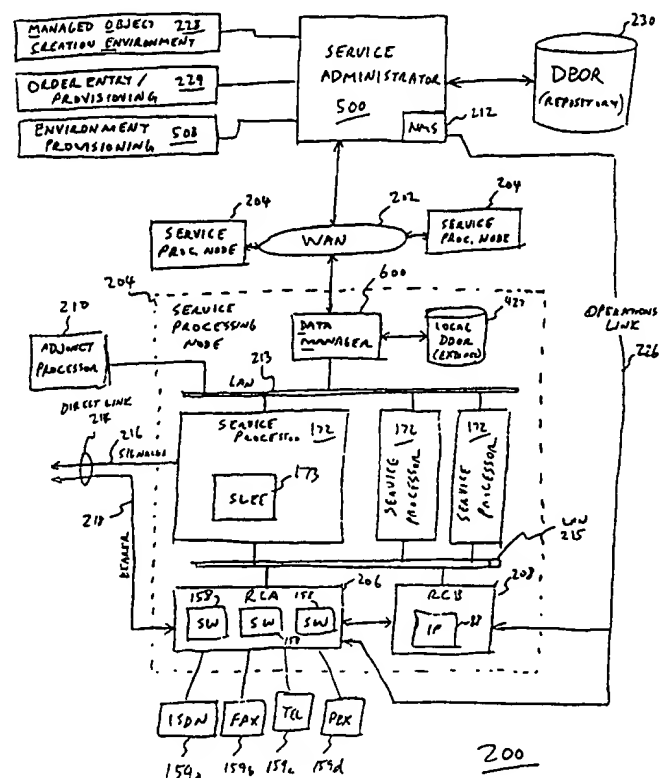 MANAGED OBJECT 228
CREATION ENVIRONMENT
ORDER ENTRY / 229
PROVISIONING
ENVIRONMENT
PROVISIONING 508
SERVICE
ADMINISTRATOR
500
NMS
212
230
DBOR
(REPOSITORY)
204
SERVICE
PROC. NODE
202
WAN
204
SERVICE
PROC. NODE
204
SERVICE
PROCESSING
NODE
600
DATA
MANAGER
427
LOCAL
DBOR
OPERATIONS
LINK
226
210
ADJUNCT
PROCESSOR
213
LAN
DIRECT LINK
216
SIGNALING
218
BEARER
SERVICE
PROCESSOR 172
SLEE
173
172
SERVICE
PROCESSOR
172
SERVICE
PROCESSOR
LAN
215
206
RCA
158
SW
SW
158
158
SW
208
RCB
IP
88
ISDN
FAX
TEL
PBX
159a
159b
159c
159d
200